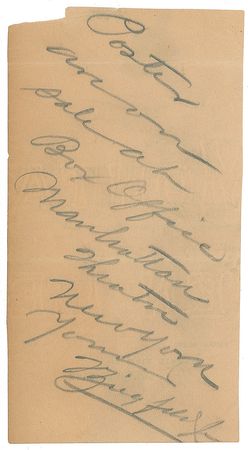 Poster
are on
sale at
Box Office
Manhattan
Theatre
New York
Yours
Ziegfeld